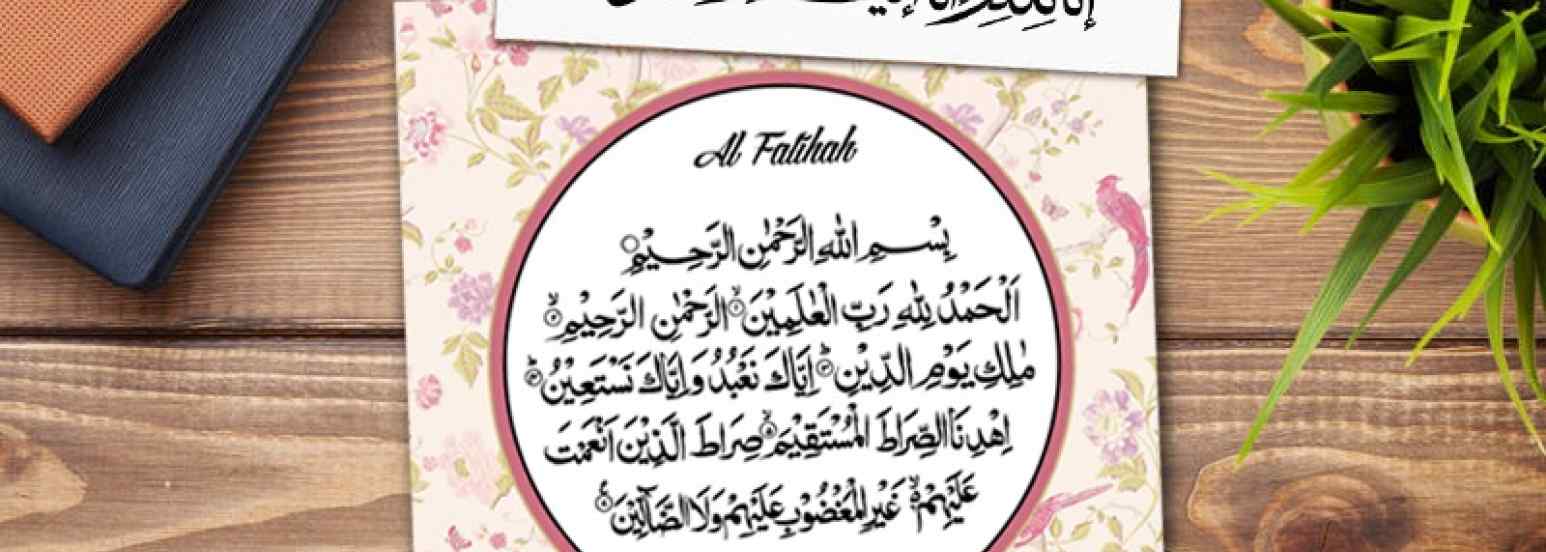 إنا لله
Al Fatihah
بِسْمِ اللهِ الرَّحْمٰنِ الرَّحِيْمِ
اَلْحَمْدُ لِلّٰهِ رَبِّ الْعٰلَمِيْنَ ۙ﴿١﴾ الرَّحْمٰنِ الرَّحِيْمِ ۙ﴿٢﴾
مٰلِكِ يَوْمِ الدِّيْنِ ۗ﴿٣﴾ اِيَّاكَ نَعْبُدُ وَاِيَّاكَ نَسْتَعِيْنُ ۗ﴿٤﴾
اِهْدِنَا الصِّرَاطَ الْمُسْتَقِيْمَ ۙ﴿٥﴾ صِرَاطَ الَّذِيْنَ اَنْعَمْتَ
عَلَيْهِمْ ۙ﴿٦﴾ غَيْرِ الْمَغْضُوْبِ عَلَيْهِمْ وَلَا الضَّآلِّيْنَ